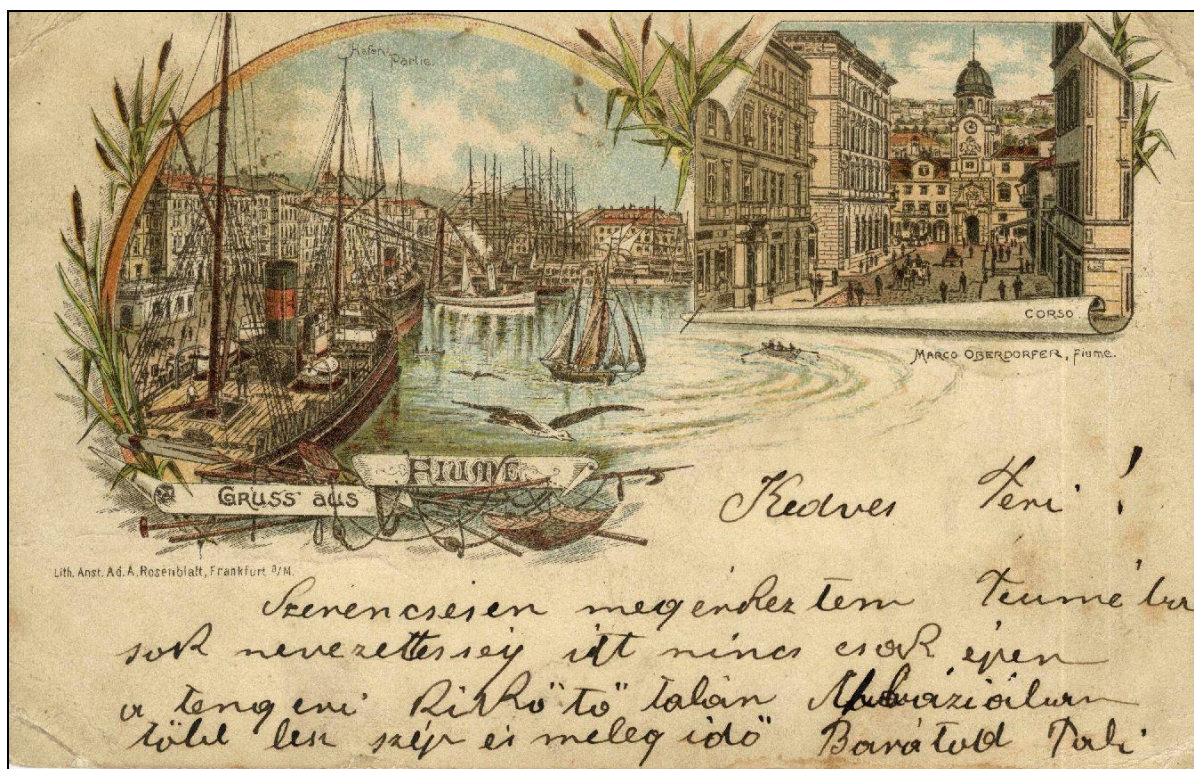 Hafen Partie.
CORSO
MARCO OBERDORFER, Fiume.
GRUSS aus FIUME
Lith. Anst. Ad. A. Rosenblatt, Frankfurt a/M.
Kedves Teri!
Szerencsesen megérkeztem
sok nevezettesség itt nincs csak épen
a tengeri kikötő talán
több lesz szép és meleg idő Barátod